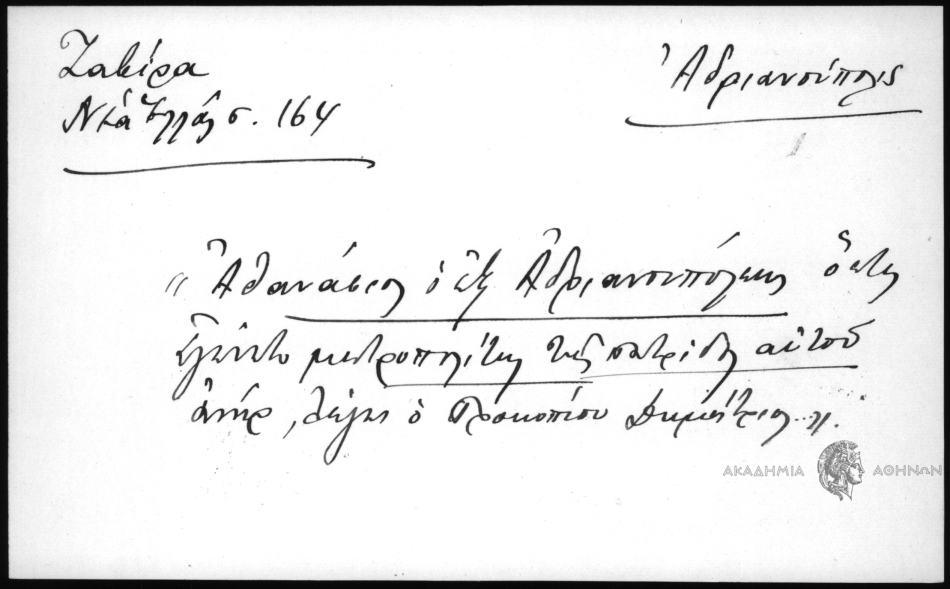 Ζαβίρα
Νέα Ἑλλάς σ. 164
Ἀδριανούπολις
"Ἀθανάσιος ὁ ἐξ Ἀδριανουπόλεως ὅστις
ἐγένετο μητροπολίτης τῆς πατρίδος αὐτοῦ
ἀνήρ, λέγει ὁ Προκοπίου Δημήτριος..".
ΑΚΑΔΗΜΙΑ ΑΘΗΝΩΝ